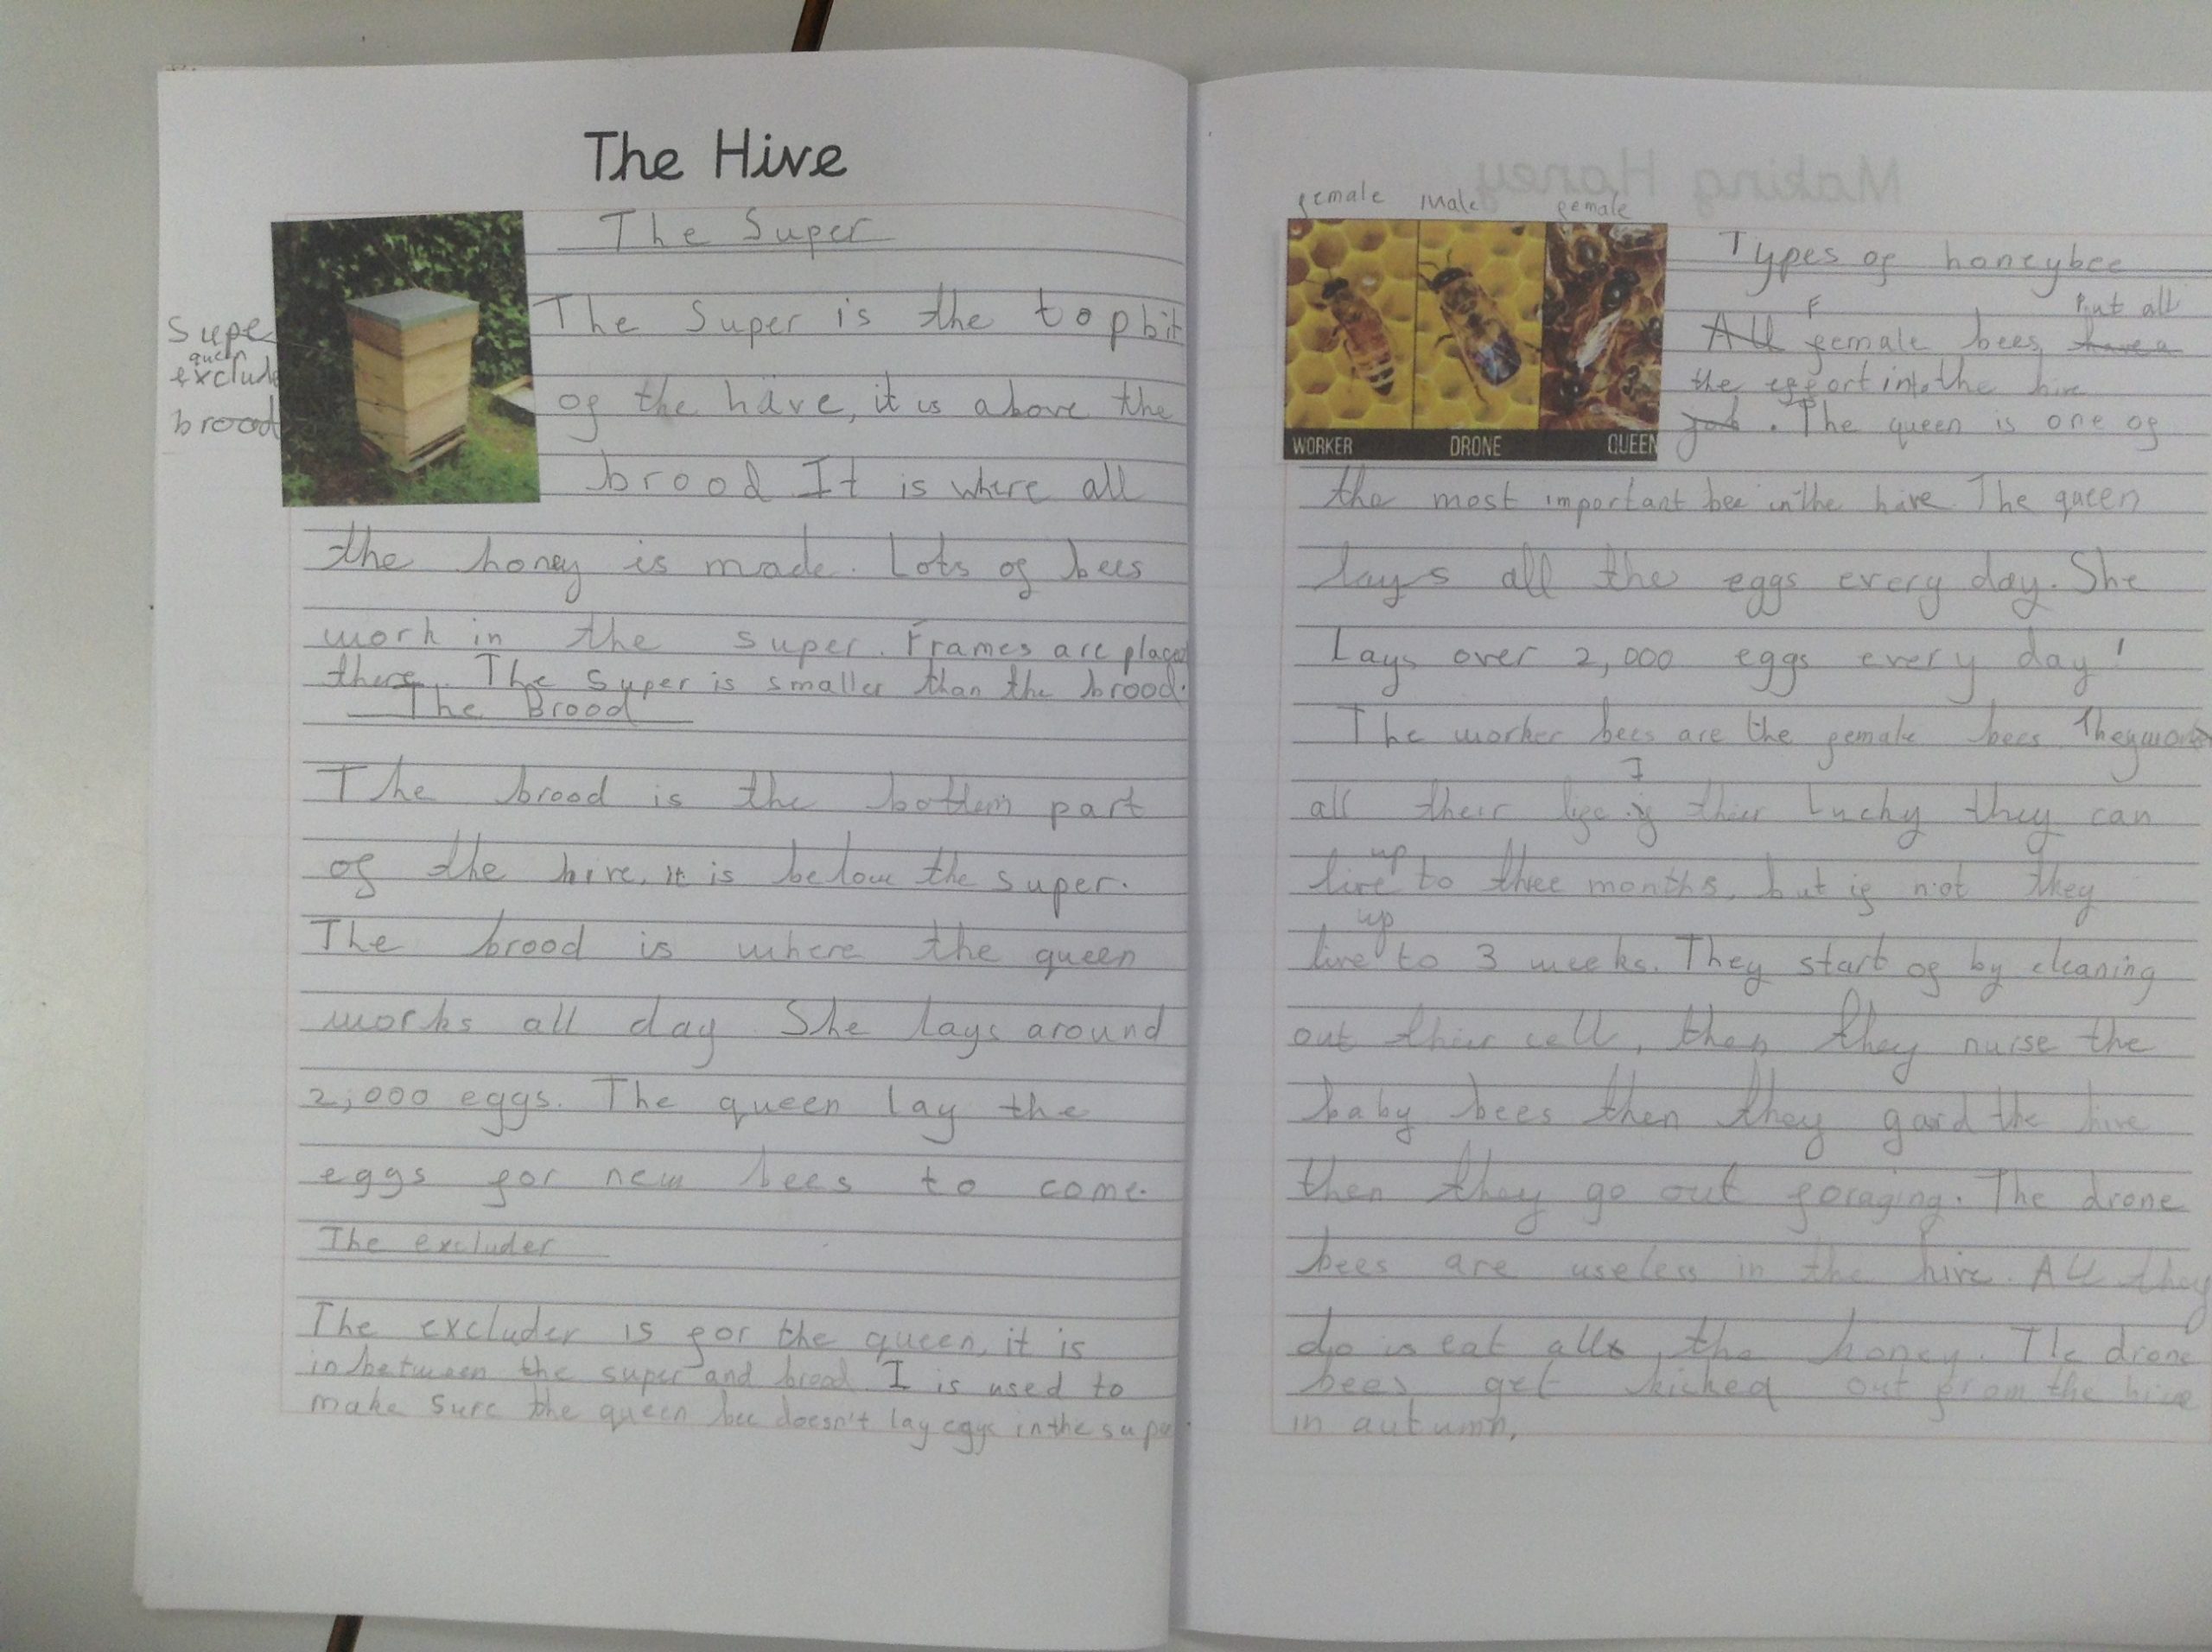 The Hive
The Super
Supe
queen
exclude
brood
The Super is the top bit
of the hive, it is above the
brood It is where all
the honey is made. Lots of bees
work in the super. Frames are placed
there. The Super is smaller than the brood.
The Brood
The brood is the bottem part
of the hive, it is below the super.
The brood is where the queen
works all day She lays around
2,000 eggs. The queen lay the
eggs for new bees to come.
The excluder
The excluder is for the queen, it is
inbetween the super and brood I is used to
make sure the queen bee doesn't lay eggs in the supe
Making Honey
female male female
WORKER DRONE QUEEN
Types of honeybee
F put all
All female bees have a
the effort into the hive
job. The queen is one of
the most important bee in the hive The queen
lays all the eggs every day. She
Lays over 2,000 eggs every day!
The worker bees are the female bees They work
I
all their life if their Lucky they can
up
live to three months, but if not they
up
live to 3 weeks. They start of by cleaning
out their cell, then they nurse the
baby bees then they gard the hive
then they go out foraging. The drone
bees are useless in the hive. All they
do is eat all the honey. The drone
bees get kicked out from the hive
in autumn.